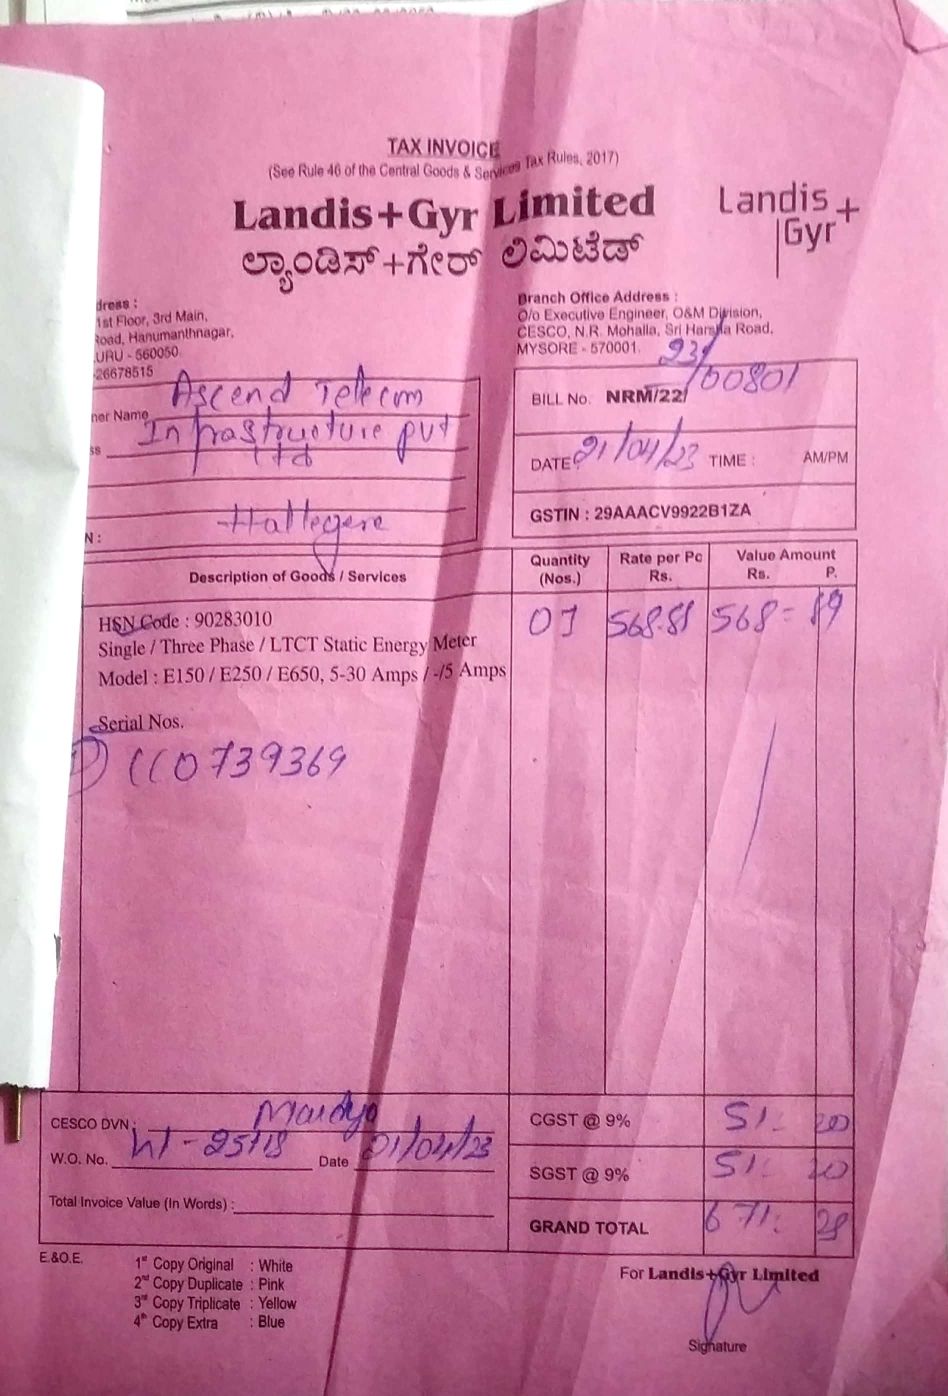 TAX INVOICE
(See Rule 46 of the Central Goods & Services Tax Rules, 2017)
Landis+Gyr Limited
Landis+
Gyr
ಲ್ಯಾಂಡಿಸ್+ಗೇರ್ ಲಿಮಿಟೆಡ್
dress :
1st Floor, 3rd Main,
Road, Hanumanthnagar,
URU - 560050
26678515
Branch Office Address :
O/o Executive Engineer, O&M Division,
CESCO, N.R. Mohalla, Sri Harsha Road,
MYSORE - 570001.
ner Name Ascend Telecom
ss Infrastructure pvt
Ltd
Hallegere
N :
BILL No. NRM/22/ 23/00801
DATE 21/04/23 TIME : AM/PM
GSTIN : 29AAACV9922B1ZA
Description of Goods / Services Quantity (Nos.) Rate per Pc Rs. Value Amount Rs. P.
HSN Code : 90283010 01 568.88 568= 89
Single / Three Phase / LTCT Static Energy Meter
Model : E150 / E250 / E650, 5-30 Amps / -/5 Amps
Serial Nos.
1) CC0739369
CESCO DVN : Mandya
W.O. No. Date 21/04/23
Total Invoice Value (In Words) :
CGST @ 9% 51. 20
SGST @ 9% 51. 20
GRAND TOTAL 671. 28
E.&O.E.
1st Copy Original : White
2nd Copy Duplicate : Pink
3rd Copy Triplicate : Yellow
4th Copy Extra : Blue
For Landis+Gyr Limited
Signature